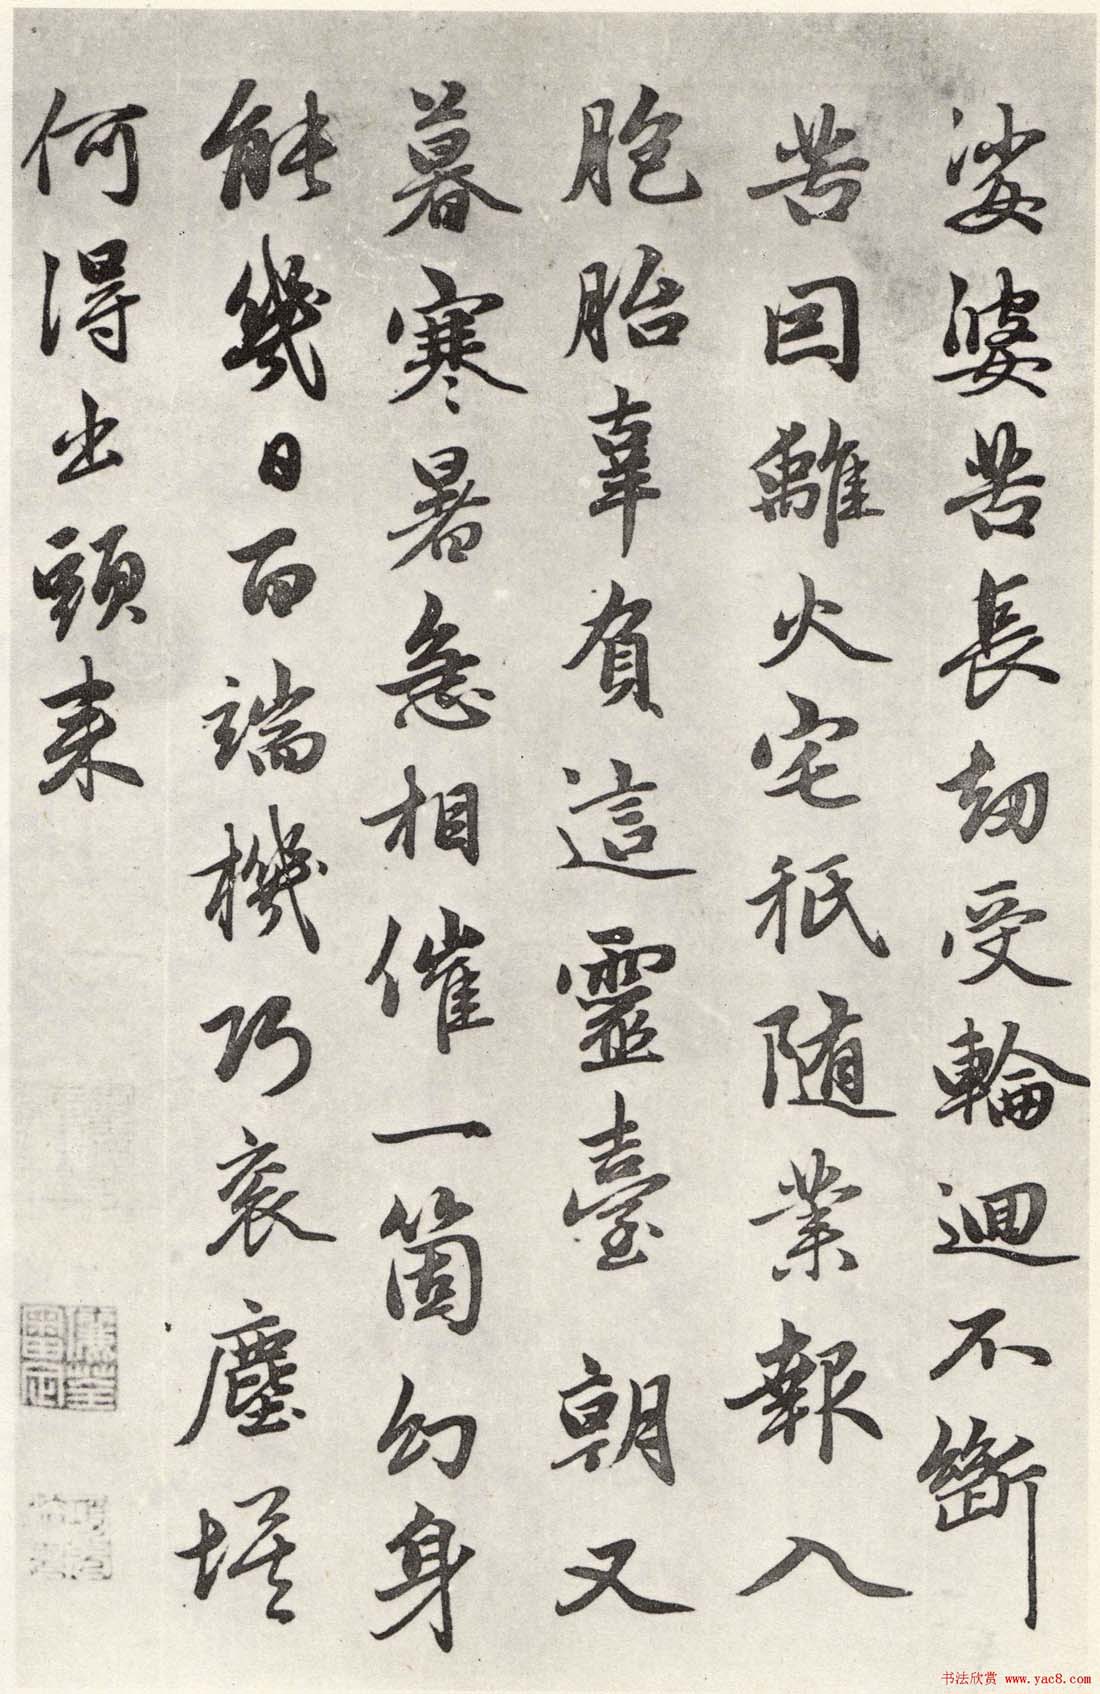 娑婆苦長劫受輪迴不斷
苦囙離火宅秖随業報入
胞胎辜負這靈臺朝又
暮寒暑急相催一箇幻身
能幾日百端機巧衮塵埃
何得出頭来
书法欣赏 www.yac8.com